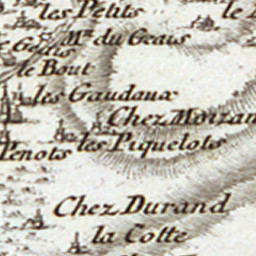 les Petits
le
Mⁿ. du Geais
le Bout
les Gaudaux
Chez Moizan
Penots
les Piquelots
Chez Durand
la Cotte